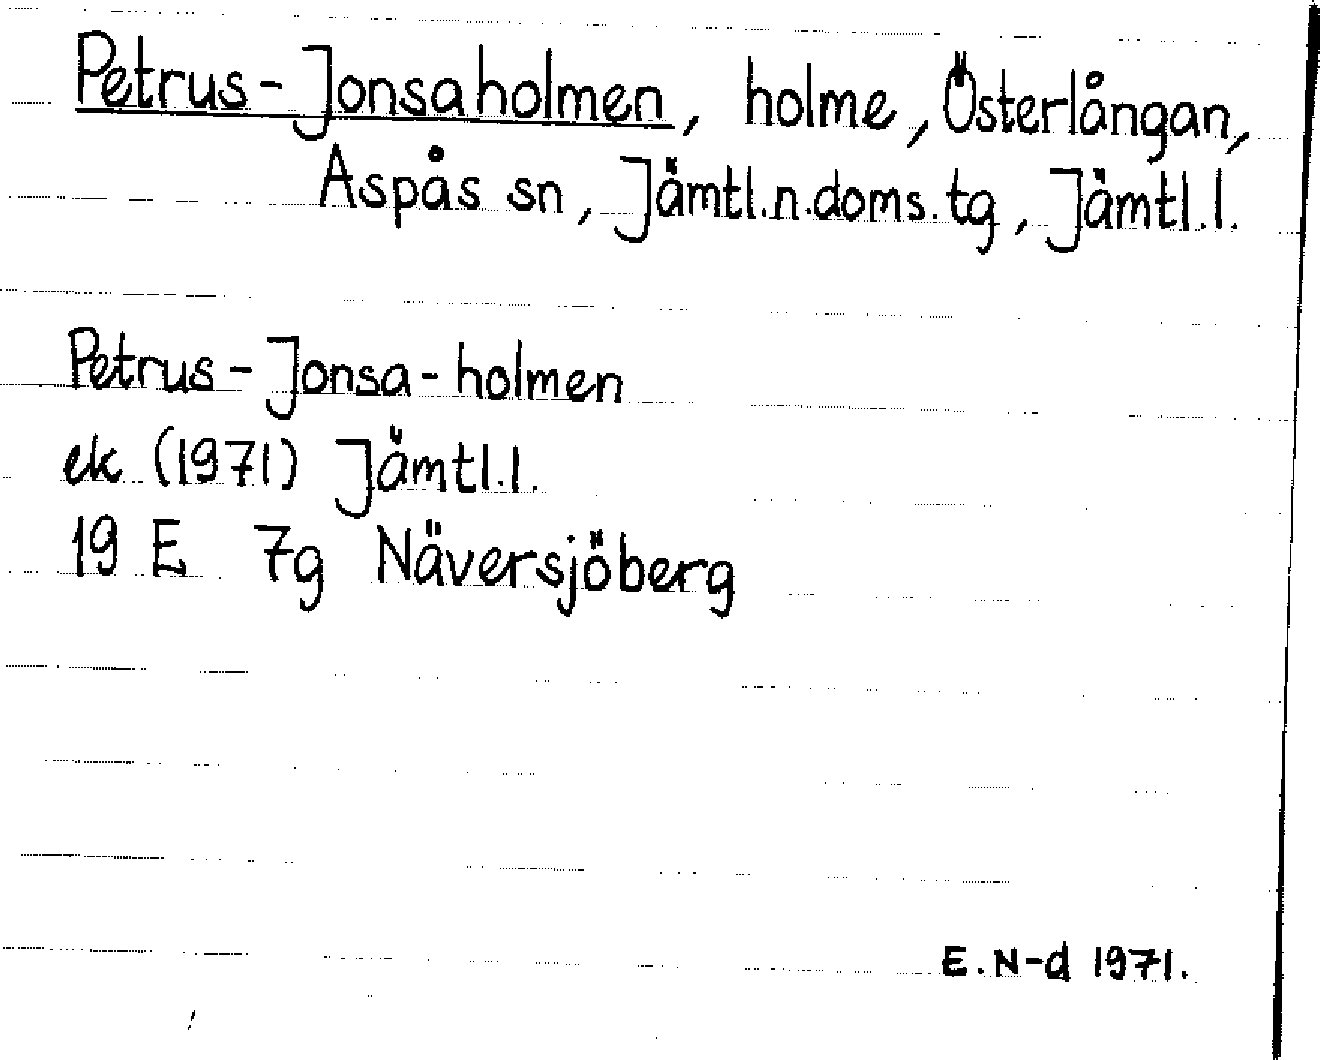 Petrus-Jonsaholmen, holme, Österlångan,
Aspås sn, Jämtl.n.doms.tg, Jämtl.l.
Petrus-Jonsa-holmen
ek (1971) Jämtl.l.
19 E 7g Näversjöberg
E.N-d 1971.